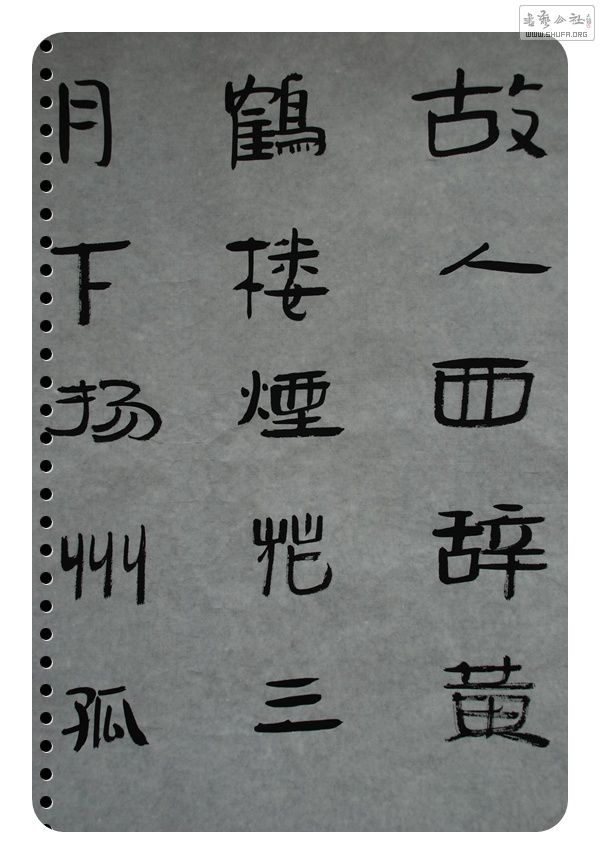 故人西辞黄
鶴楼煙花三
月下扬州孤
書藝公社
WWW.SHUFA.ORG